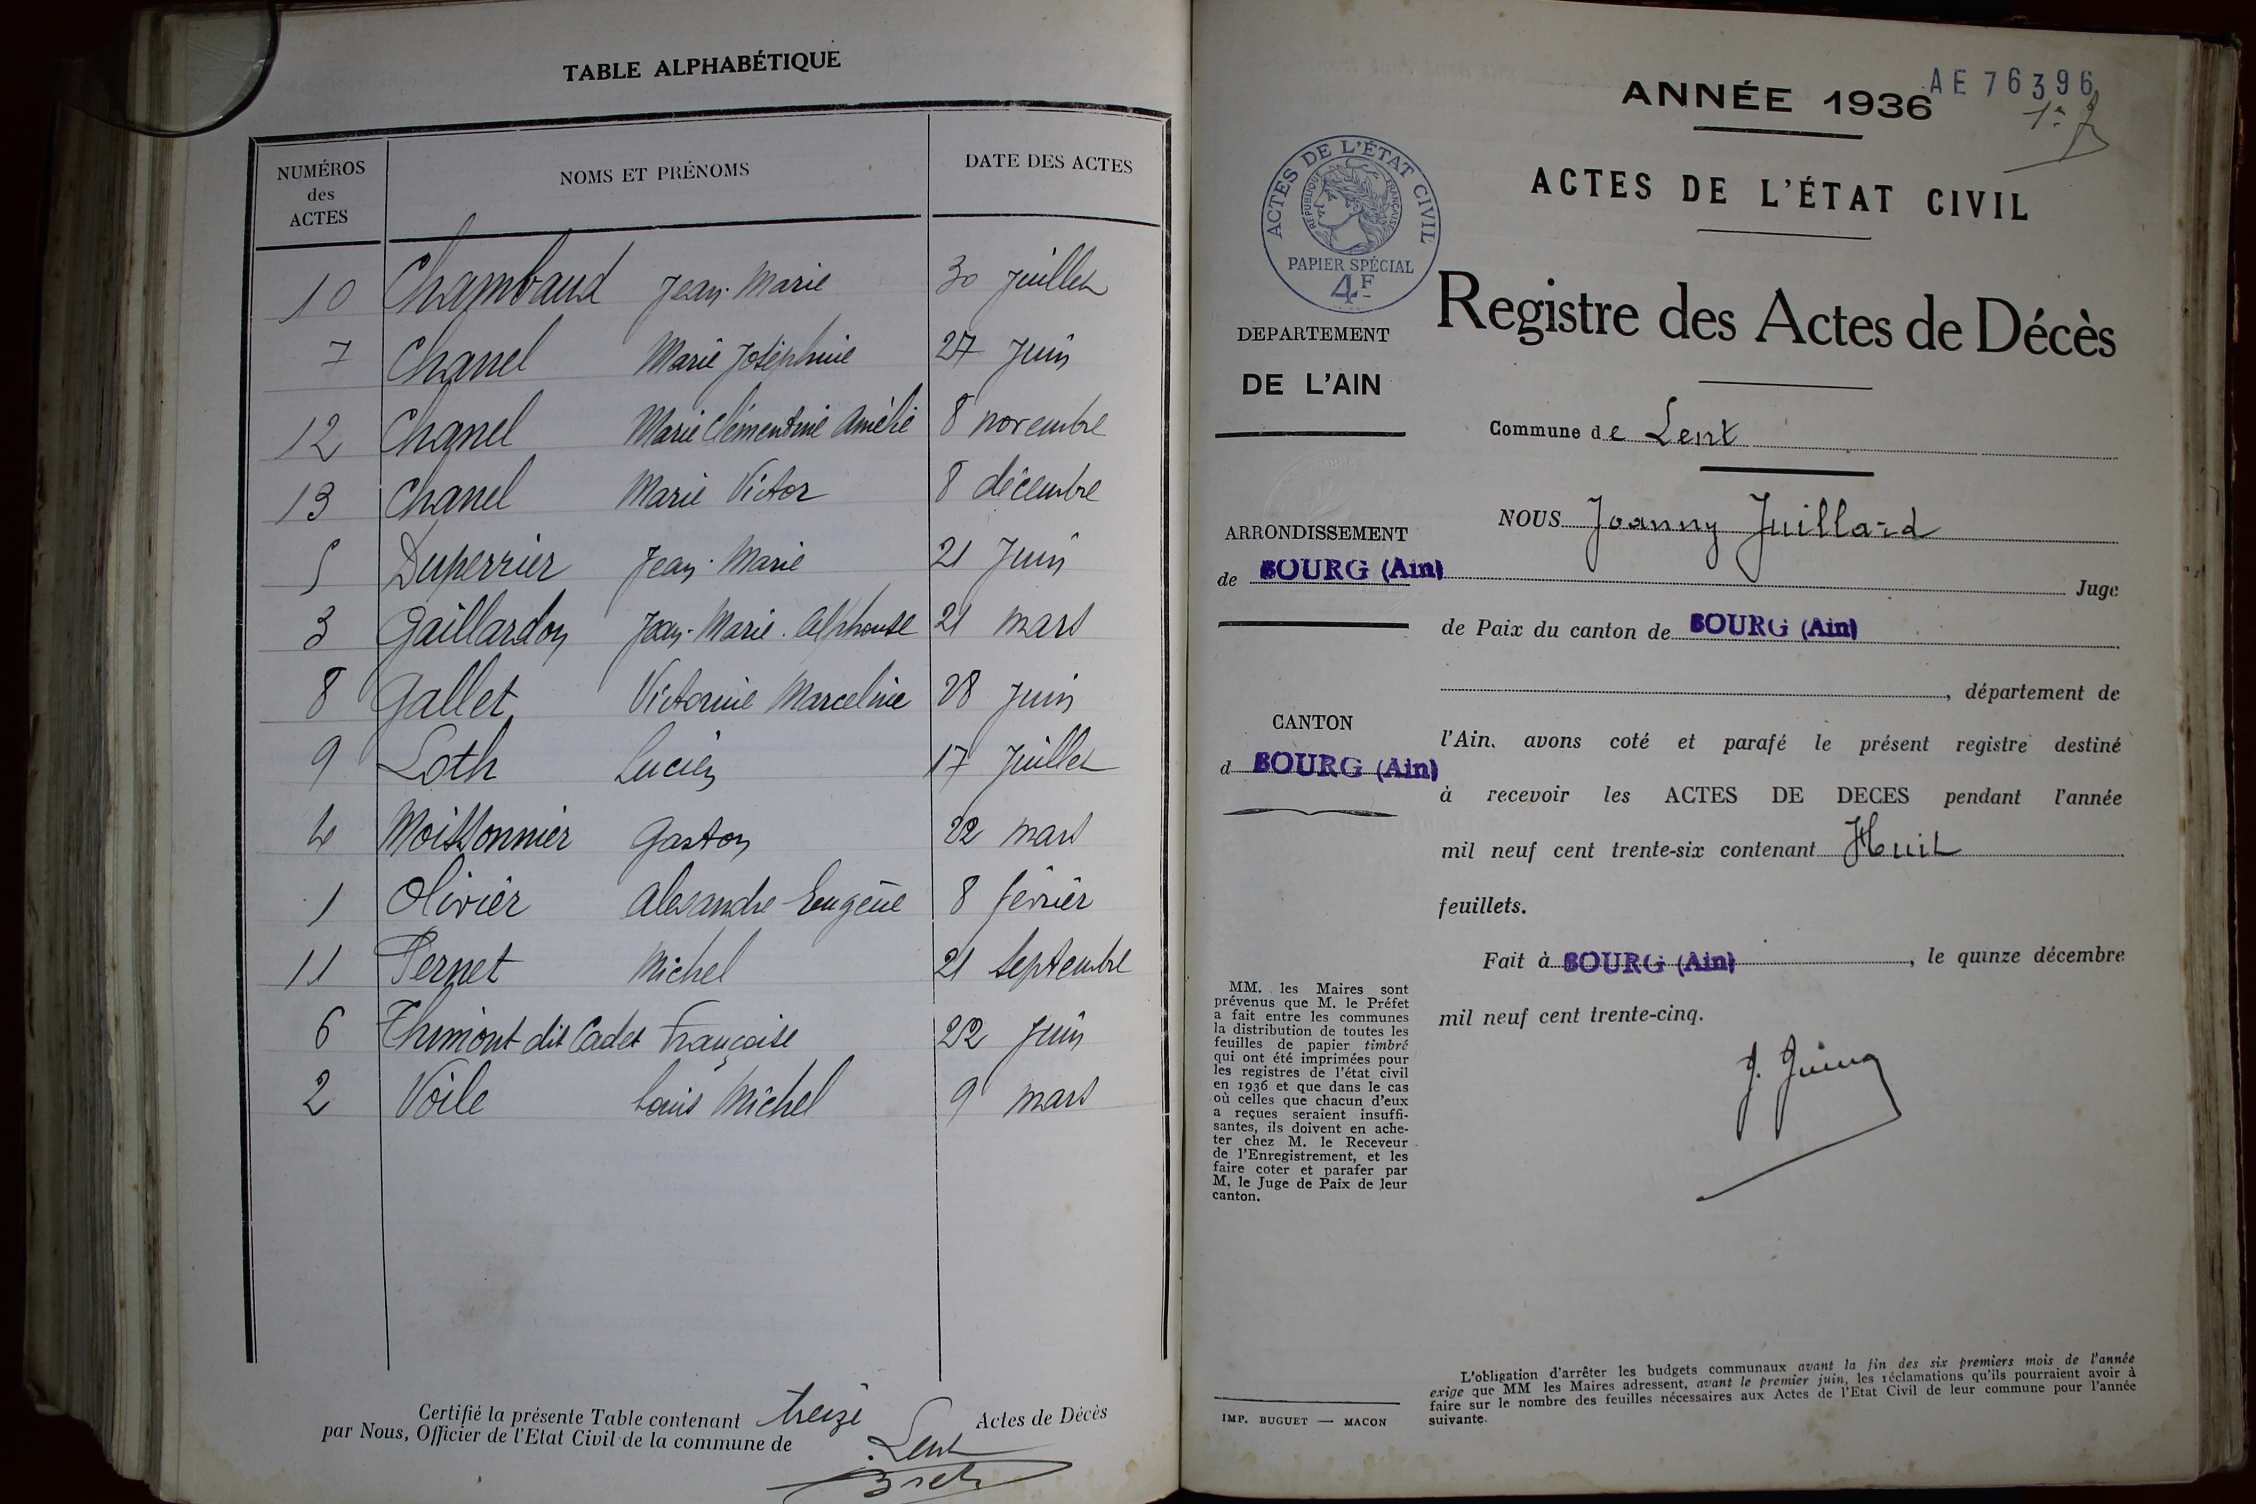 TABLE ALPHABÉTIQUE
NUMÉROS des ACTES NOMS ET PRÉNOMS DATE DES ACTES
10 Chambaud Jean-Marie 30 Juillet
7 Chanel Marie Joséphine 27 Juin
12 Chanel Marie Clémentine Amélie 8 novembre
13 Chanel Marie Victor 8 décembre
5 Duperrier Jean-Marie 21 Juin
3 Gaillardon Jean-Marie-Alphonse 21 mars
8 Gallet Victorine Marceline 28 Juin
9 Loth Lucien 17 Juillet
4 Moissonnier Gaston 22 mars
1 Olivier Alexandre Eugène 8 février
11 Pernet Michel 21 Septembre
6 Thimont dit Cadet Françoise 22 Juin
2 Voile Louis Michel 9 mars
Certifié la présente Table contenant treize Actes de Décès
par Nous, Officier de l'Etat Civil de la commune de
Lent
AE 76396
ANNÉE 1936
ACTES DE L'ÉTAT CIVIL
ACTES DE L'ÉTAT CIVIL
RÉPUBLIQUE FRANÇAISE
PAPIER SPÉCIAL
4F
Registre des Actes de Décès
DEPARTEMENT
DE L'AIN
Commune de Lent
NOUS Joanny Juillard
ARRONDISSEMENT
de BOURG (Ain)
Juge
de Paix du canton de BOURG (Ain)
, département de
CANTON
d BOURG (Ain)
l'Ain, avons coté et parafé le présent registre destiné
à recevoir les ACTES DE DECES pendant l'année
mil neuf cent trente-six contenant Huit
feuillets.
Fait à BOURG (Ain), le quinze décembre
mil neuf cent trente-cinq.
MM. les Maires sont
prévenus que M. le Préfet
a fait entre les communes
la distribution de toutes les
feuilles de papier timbré
qui ont été imprimées pour
les registres de l'état civil
en 1936 et que dans le cas
où celles que chacun d'eux
a reçues seraient insuffi-
santes, ils doivent en ache-
ter chez M. le Receveur
de l'Enregistrement, et les
faire coter et parafer par
M. le Juge de Paix de leur
canton.
IMP. BUGUET — MACON
L'obligation d'arrêter les budgets communaux avant la fin des six premiers mois de l'année
exige que MM les Maires adressent, avant le premier juin, les réclamations qu'ils pourraient avoir à
faire sur le nombre des feuilles nécessaires aux Actes de l'Etat Civil de leur commune pour l'année
suivante.